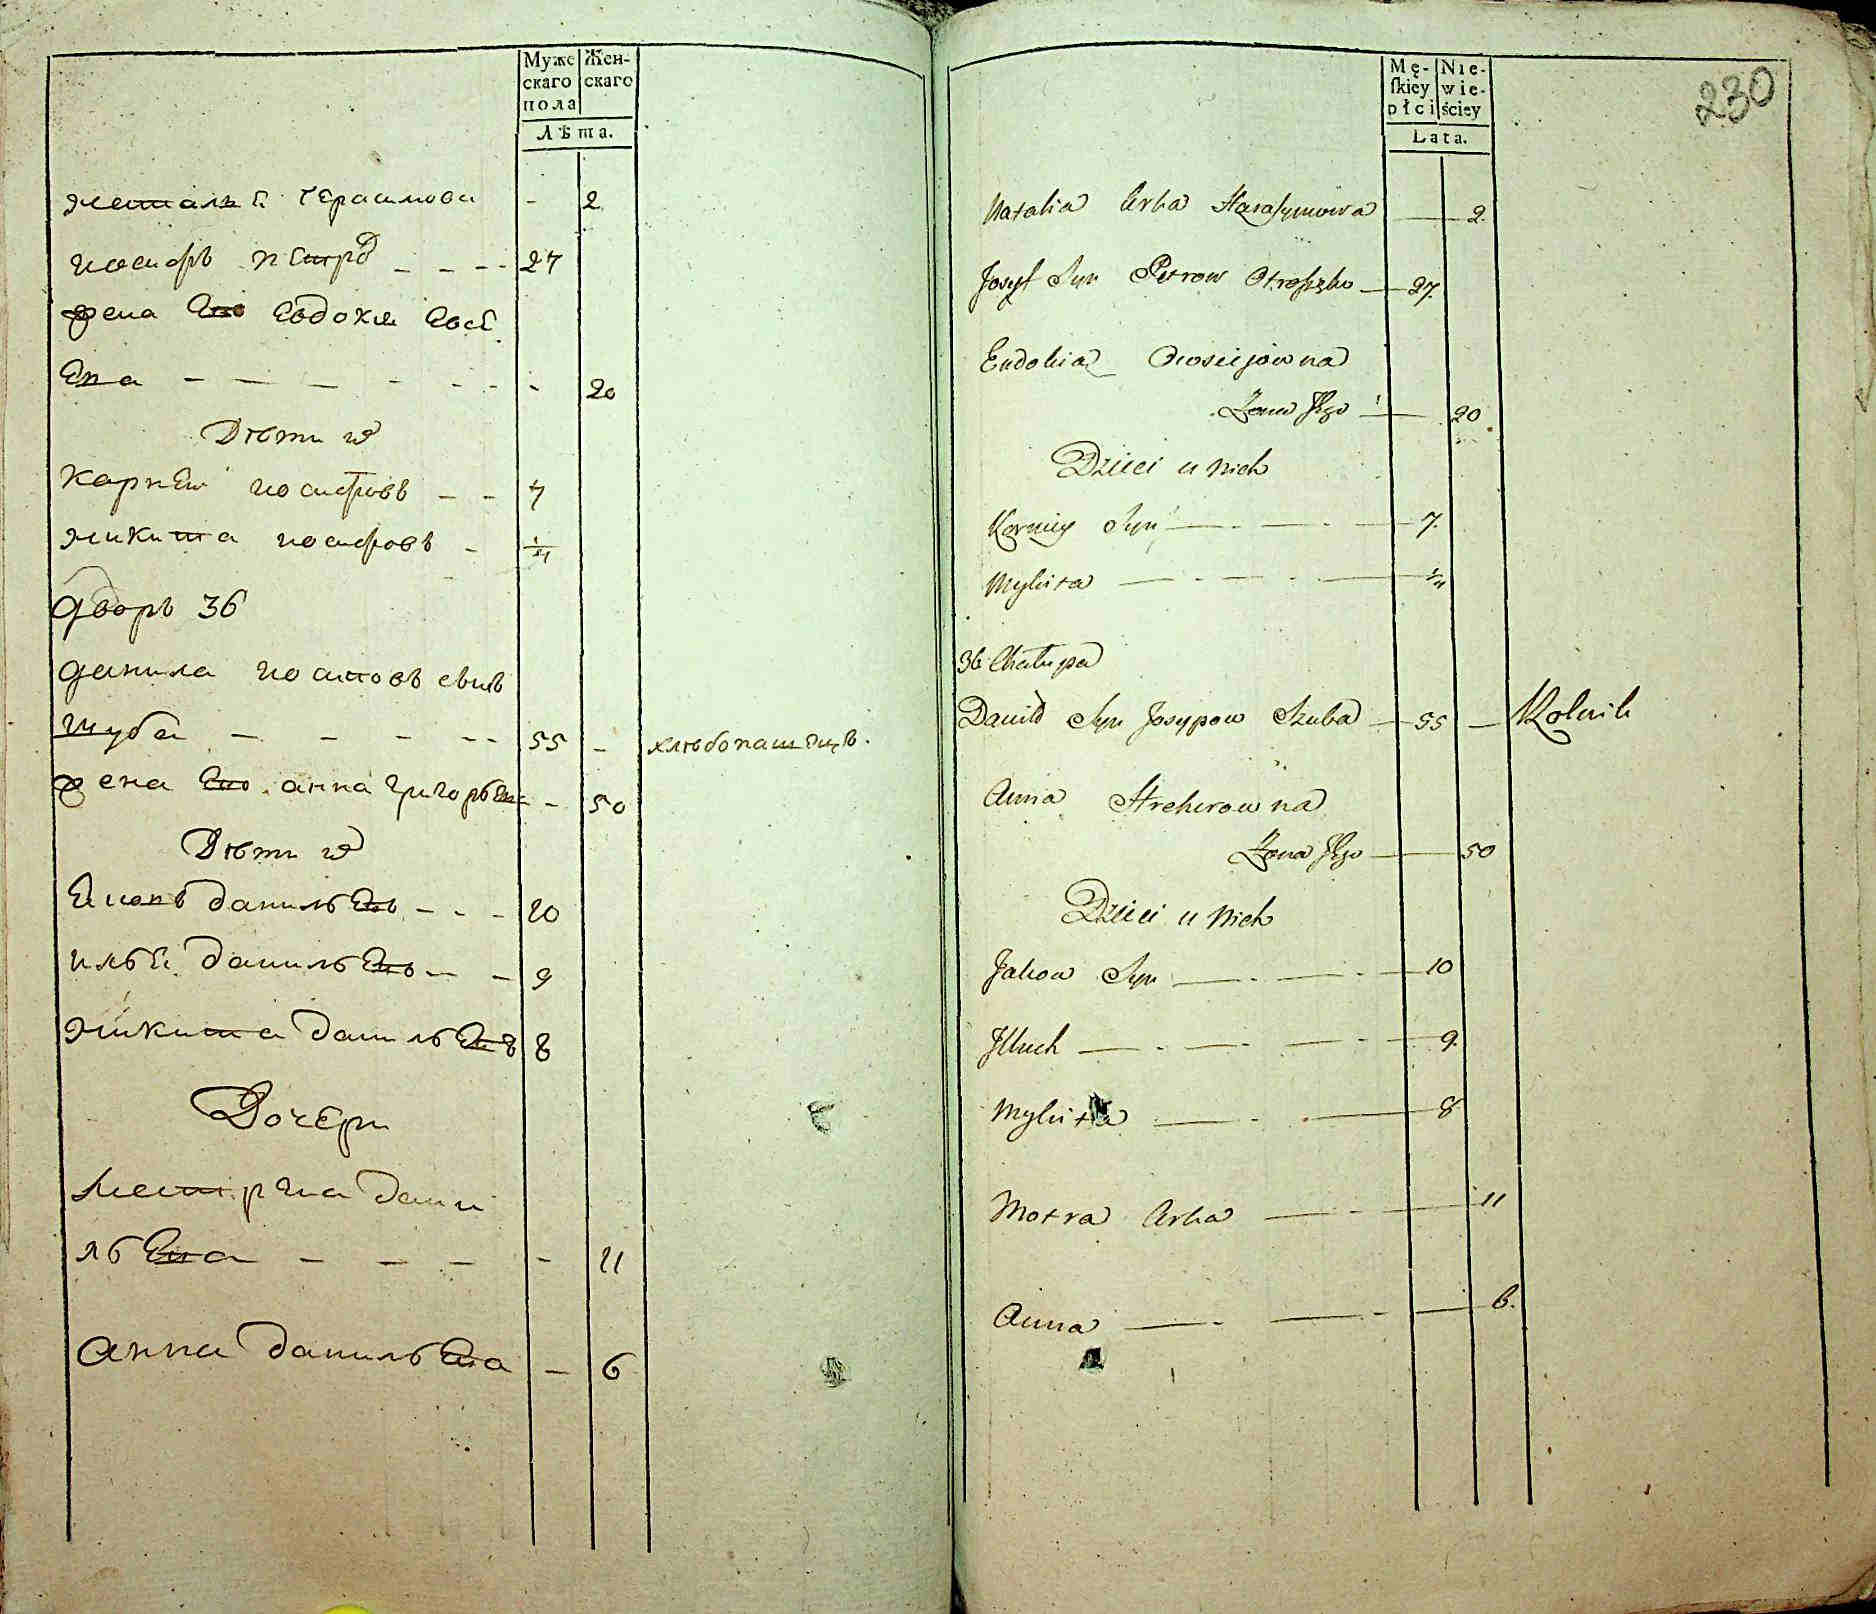 Муже Жен-
скаго скаго
пола
Лѣта.
наталья Герасимова - 2
иосифъ петро - - - - 27
жена Его Евдокия Евсе
Ена - - - - - - - 20
Дѣти их
Карней иосифовъ - - 7
никита иосифовъ - 1/4
Дворъ 36
данила иосиповъ сынъ
шуба - - - - - 55 - хлѣбопашецъ.
жена Его анна григорьевна - 50
Дѣти их
данильевъ - - - 10
илья данильевъ - - 9
никита данильевъ 8
Дочери
мотрина дани
льева - - - - 11
анна данильева - 6
230
Mę- Nie-
skiey wie-
płci ściey
Lata.
Natalia Crka Harasymowa — 2.
Josyf Syn Petrow — 27.
Eudokia Owsiejowna
Żona Jego — 20
Dzieci u nich
Korniey Syn — 7.
Mykita — 1/4
36 Chałupa
Daniło Syn Josypow Szuba — 55 — Rolnik
Anna Hrehorowna
Żona Jego — 50
Dzieci u nich
Jakow Syn — 10
Illuch — 9.
Mykita — 8
Motra Crka — 11
Anna — 6.